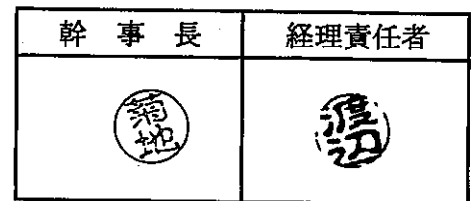 幹事長 経理責任者
菊地 渡辺